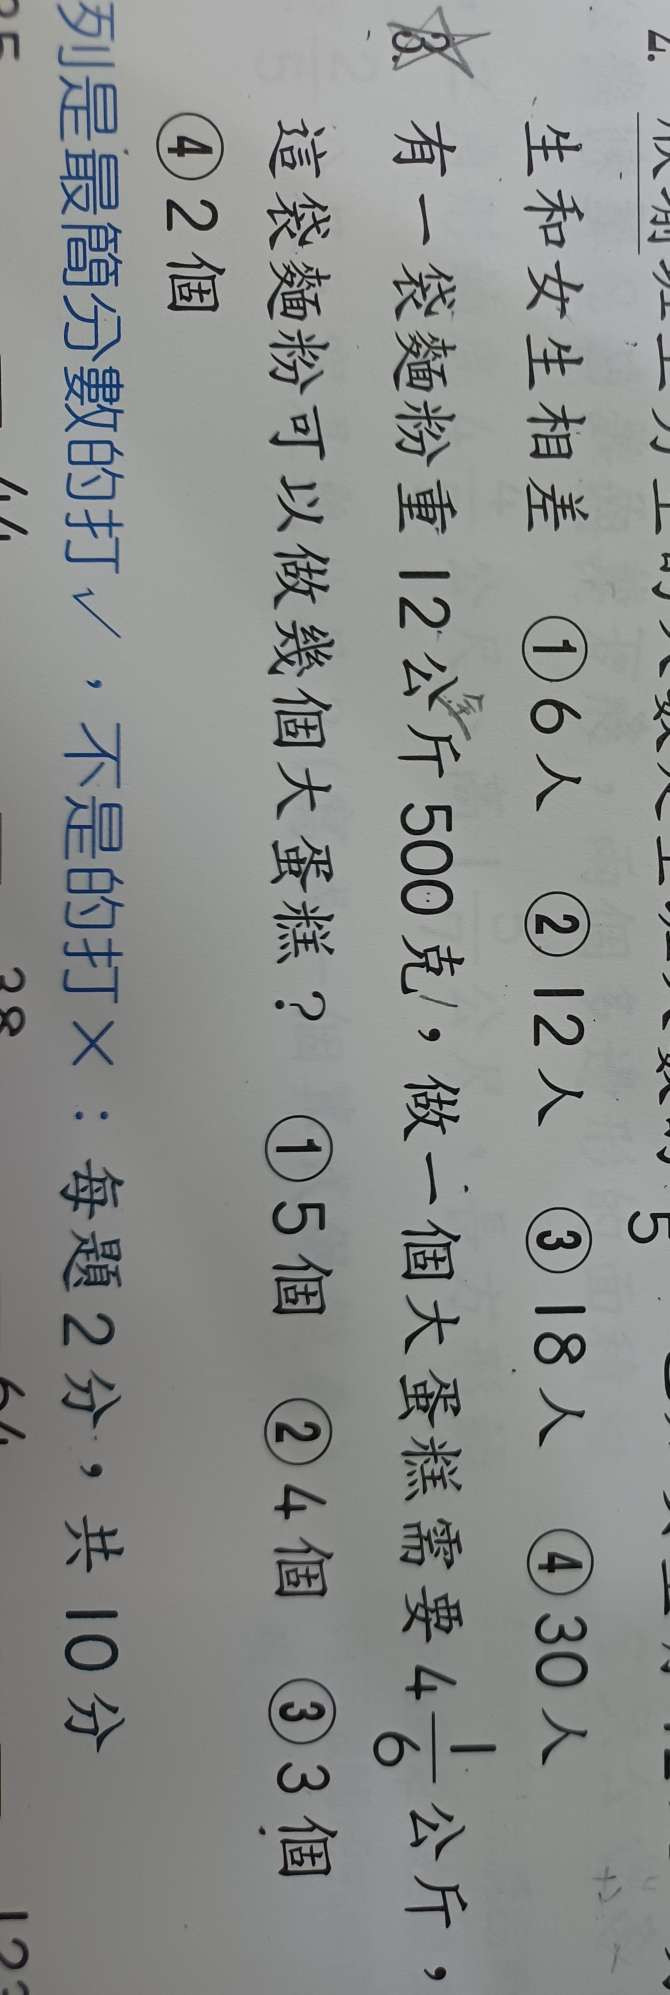 生和女生相差 ①6人 ②12人 ③18人 ④30人
3. 有一袋麵粉重12公斤500克,做一個大蛋糕需要4 1/6 公斤,
這袋麵粉可以做幾個大蛋糕? ①5個 ②4個 ③3個
④2個
列是最簡分數的打✓,不是的打×:每題2分,共10分